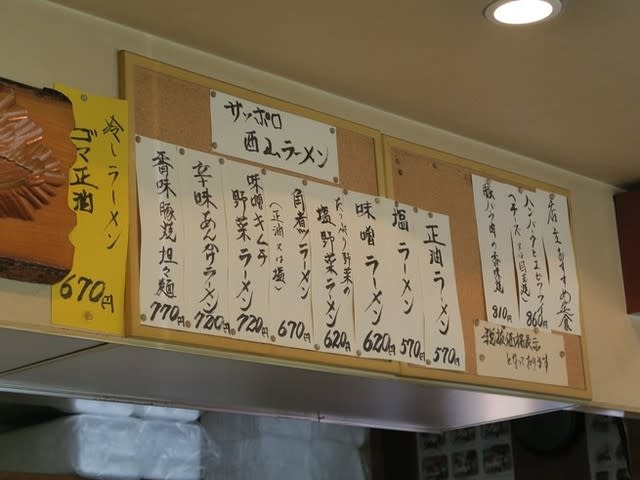 店主おすすめ定食
ハンバーグとエビフライ
860円
豚バラ肉の香味焼
810円
税抜価格表示
となっております
サッポロ
西山ラーメン
正油ラーメン
570円
塩ラーメン
570円
味噌ラーメン
620円
たっぷり野菜の
塩野菜ラーメン
620円
角煮ラーメン
(正油又は塩)
670円
味噌キムチ
野菜ラーメン
720円
辛味あんかけラーメン
720円
香味豚焼担々麺
770円
冷しラーメン
ゴマ正油
670円